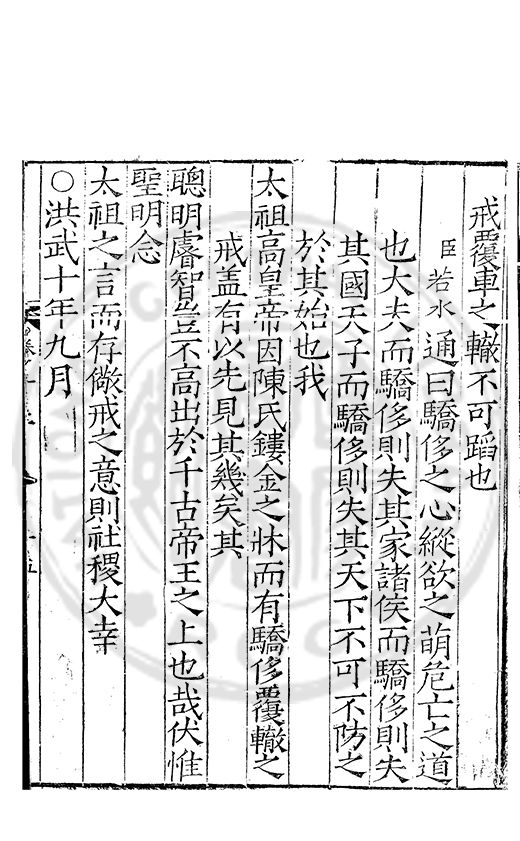 戒覆車之轍不可蹈也
臣若水通曰驕侈之心縱欲之萌危亡之道
也大夫而驕侈則失其家諸侯而驕侈則失
其國天子而驕侈則失其天下不可不防之
於其始也我
太祖高皇帝因陳氏鏤金之牀而有驕侈覆轍之
戒盖有以先見其幾矣其
聰明睿智豈不高出於千古帝王之上也哉伏惟
聖明念
太祖之言而存儆戒之意則社稷大幸
○洪武十年九月